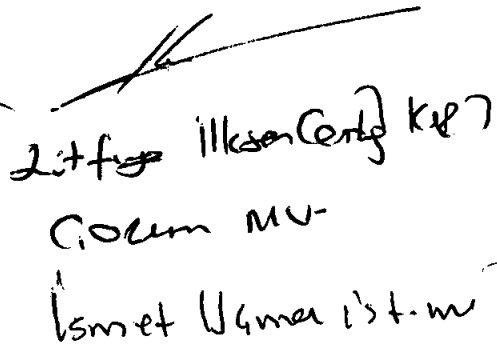 Lütfiye İlksen Ceritoğlu Kurt
Çorum MV.
İsmet Uçma İst. mv